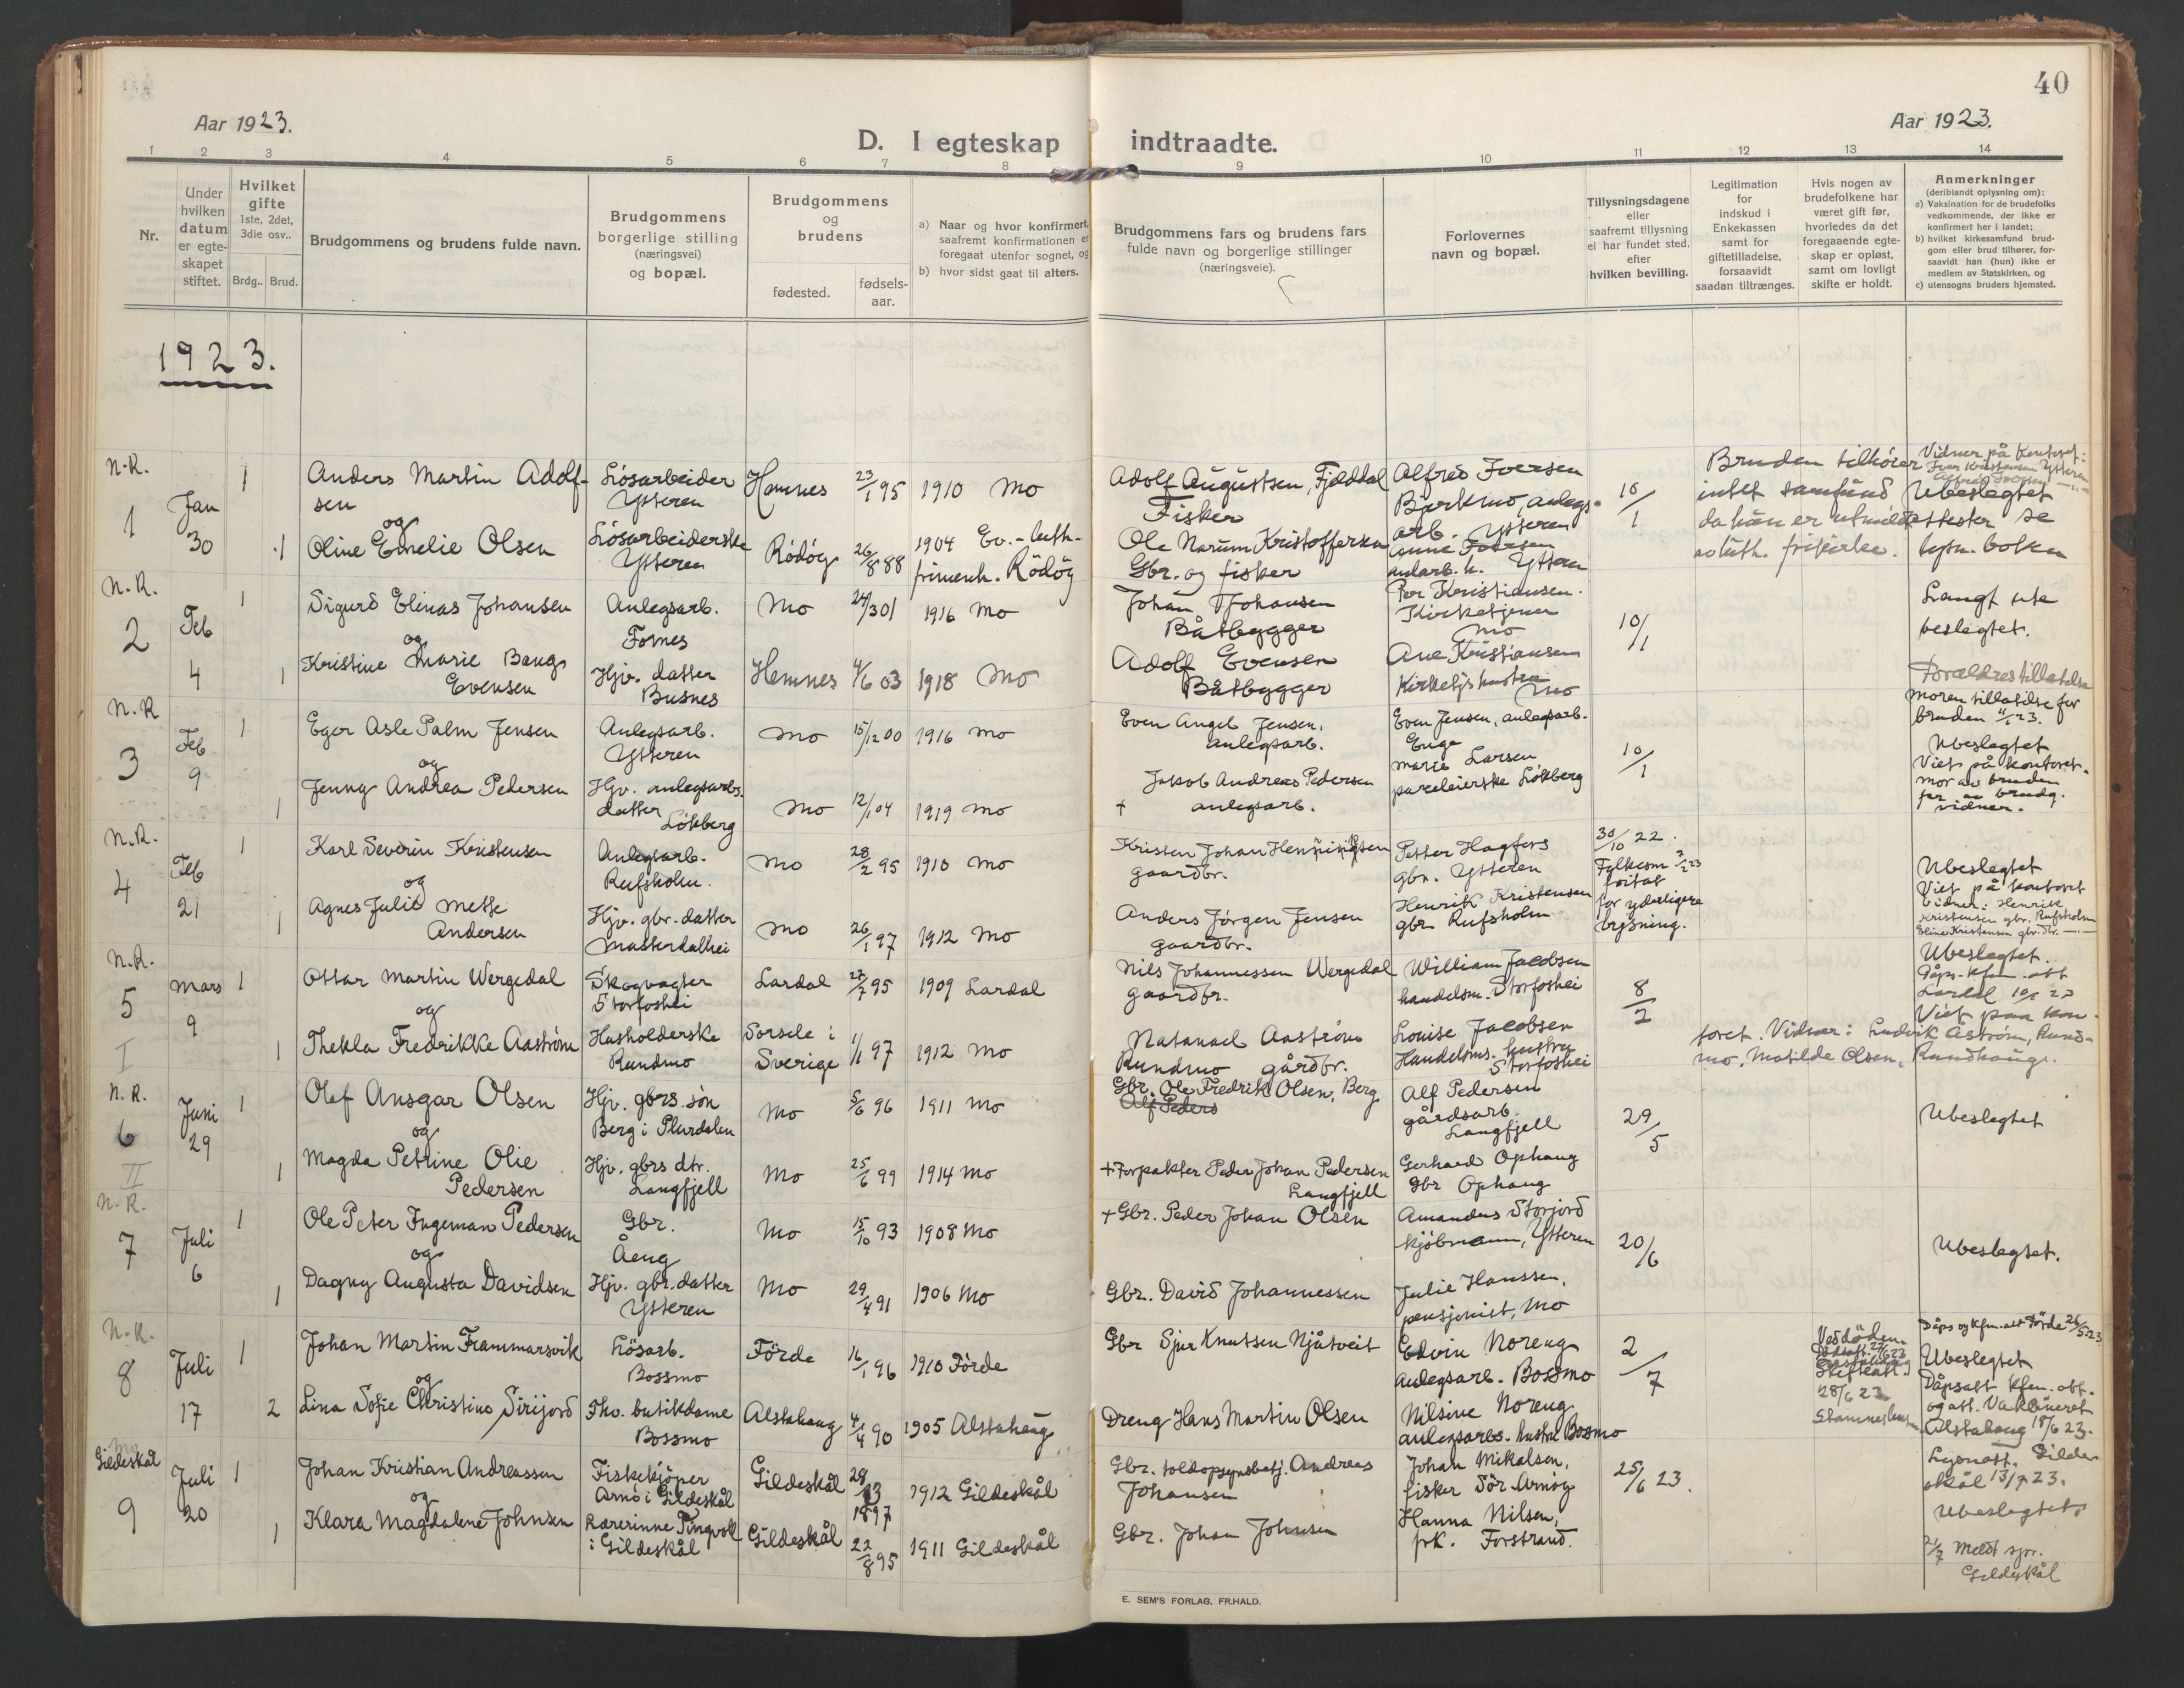 40
Aar 1923.
Aar 1923.
D. I egteskap indtraadte.
1 2 3 4 5 6 7 8 9 10 11 12 13 14
Nr.
Under
hvilken
datum
er egte-
skapet
stiftet.
Hvilket
gifte
1ste, 2det,
3die osv..
Brdg.. Brud.
Brudgommens og brudens fulde navn.
Brudgommens
borgerlige stilling
(næringsvei)
og bopæl.
Brudgommens
og
brudens
fødested.
fødsels-
aar.
a) Naar og hvor konfirmert,
saafremt konfirmationen er
foregaat utenfor sognet, og
b) hvor sidst gaat til alters.
Brudgommens fars og brudens fars
fulde navn og borgerlige stillinger
(næringsveie).
Forlovernes
navn og bopæl.
Tillysningsdagene
eller
saafremt tillysning
ei har fundet sted.
efter
hvilken bevilling.
Legitimation
for
indskud i
Enkekassen
samt for
giftetilladelse.
forsaavidt
saadan tiltrænges.
Hvis nogen av
brudefolkene har
været gift før,
hvorledes da det
foregaaende egte-
skap er opløst,
samt om lovligt
skifte er holdt.
Anmerkninger
(deriblandt oplysning om):
a) Vaksination for de brudefolks
vedkommende, der ikke er
konfirmert her i landet;
b) hvilket kirkesamfund brud-
gom eller brud tilhører, for-
saavidt han (hun) ikke er
medlem av Statskirken, og
c) utensogns bruders hjemsted.
1923.
N.R.
1
Jan
30
1
Anders Martin Adolf-
sen
og
Løsarbeider
Ytteren
Hemnes
23/1 95
1910 Mo
Adolf Augustsen, Fjelddal
Fisker
Alfred Iversen
Bjerkmo, anlegs-
arb. Ytteren
10/1
Bruden tilhører
intet samfund
da hun er utmeldt
av luth. frikirke.
Vidner på kontoret:
Ubeslegtet
attester se
lysn. boken
1
Oline Emelie Olsen
Løsarbeiderske
Ytteren
Rödög
26/8 88
1904 Ev.-luth.
frimenh. Rödög
Ole Narum Kristoffersen
Gbr. og fisker
Anne Iversen
anlarb. h. Ytteren
N.R.
2
Feb
4
1
Sigurd Elinas Johansen
og
Anlegsarb.
Fornes
Mo
24/3 01
1916 Mo
Johan Johansen
Båtbygger
Per Kristiansen.
Kirketjener
Mo
10/1
Langt ute
beslegtet.
1
Kristine Marie Bang
Evensen
Hjv. datter
Busnes
Hemnes
4/6 03
1918 Mo
Adolf Evensen
Båtbygger
Ane Kristiansen
Kirketjs hustru
Mo
Forældres tillatelse
N.R
3
Feb
9
1
Eger Asle Palm Jensen
og
Anlegsarb.
Ytteren
Mo
15/12 00
1916 Mo
Even Angel Jensen,
anlegsarb.
Even Jensen, anlegsarb.
Enge
10/1
Moren tillatelse for
bruden 4/1 23.
Ubeslegtet
Viet på kontoret.
Mor av bruden
far av brudg.
vidner.
1
Jenny Andrea Pedersen
Hjv. anlegsarbs.
datter
Løkberg
Mo
12/1 04
1919 Mo
Jakob Andreas Pedersen
+ anlegsarb.
Marie Larsen
parceleierske Løkberg
N.R.
4
Feb
21
1
Karl Severin Kristensen
og
Anlegsarb.
Rufsholm.
Mo
28/2 95
1910 Mo
Kristen Johan Henningsen
gaardbr.
Petter Hagfors
gbr. Ytteren
30/10 22.
Fylkesm
fritat
for yderligere
lysning.
Ubeslegtet
Viet på kontoret
Vidner: Henrik
Kristensen gbr. Rufsholm
Eline Kristensen gbr. dtr.
1
Agnes Julie Mette
Andersen
Hjv. gbr. datter
Messerdalhei
Mo
26/1 97
1912 Mo
Anders Jörgen Jensen
gaardbr.
Henrik Kristensen
gbr. Rufsholm
N.R.
5
I
Mars
9
1
Ottar Martin Wergedal
og
Skogvagter
Storfoshei
Lardal
27/7 95
1909 Lardal
Nils Johannessen Wergedal
gaardbr.
William Jacobsen
handelsm. Storfoshei
8/2
Ubeslegtet.
Dåps-Kfm. att
Lardal 10/2 23
Viet paa kon-
toret. Vidner: Ludvik Aström, Rund-
mo, Matilde Olsen, Rundhaug.
1
Thekla Fredrikke Aaström
Husholderske
Rundmo
Sorsele i
Sverige
1/1 97
1912 Mo
Natanael Aaström
Rundmo gårdbr.
Louise Jacobsen
Handelsms. hustru
Storfoshei
N.R.
6
II
Juni
29
1
Olaf Ansgar Olsen
og
Hjv. gbrs. søn
Berg i Plurdalen
Mo
5/6 96
1911 Mo
Gbr. Ole Fredrik Olsen, Berg.
Alf Peders
Alf Pedersen
gårdsarb.
Langfjell
29/5
Ubeslegtet
1
Magda Petrine Olie
Pedersen
Hjv. gbrs dtr.
Langfjell
Mo
25/6 99
1914 Mo
+ Forpakter Peder Johan Pedersen
Langfjell
Gerhard Ophaug
Gbr Ophaug
N.R.
7
Juli
6
1
Ole Peter Ingeman Pedersen
og
Gbr.
Åeng
Mo
15/10 93
1908 Mo
+ Gbr. Peder Johan Olsen
Amandus Storjord
kjøbmann, Ytteren
20/6
Ubeslegtet.
1
Dagny Augusta Davidsen
Hjv. gbr. datter
Ytteren
Mo
29/4 91
1906 Mo
Gbr. David Johannessen
Julie Hanssen,
pensjonist, Mo
N.R.
8
Juli
17
1
Johan Martin Frammarsvik
og
Lösarb.
Bossmo
Förde
16/1 96
1910 Förde
Gbr Sjur Knutsen Njåtveit
Edvin Noreng
anlegsarb. Bossmo
2/7
Ved döden.
Skifteatt.
28/6 23
Dåps og Kfm. att Förde 26/5 23
Ubeslegtet
Dåpsatt Kfm. att.
og att. Vaksineret
Alstahaug 18/6 23.
2
Lina Sofie Christine Sirijord
Fhv. butikdame
Bossmo
Alstahaug
4/4 90
1905 Alstahaug
Dreng Hans Martin Olsen
Nilsine Noreng
anlegsarb. hustru Bosmo
Gildeskål
9
Juli
20
1
Johan Kristian Andreassen
og
Fiskekjöper
Arnö i Gildeskål
Gildeskål
1897
1912 Gildeskål
Gbr. toldopsynsbetj. Andreas
Johansen
Johan Mikalsen,
fisker Sör-Arnöy
25/6 23.
Lysnatt. Gilde-
skål 13/7 23.
Ubeslegtet
21/7 Meldt spr.
Gildeskål
1
Klara Magdalene Johnsen
Lærerinne Pingvoll
i Gildeskål
Gildeskål
22/8 95
1911 Gildeskål
Gbr. Johan Johnsen
Hanna Nilsen,
frk. Forstrand.
E. SEM'S FORLAG, FR.HALD.